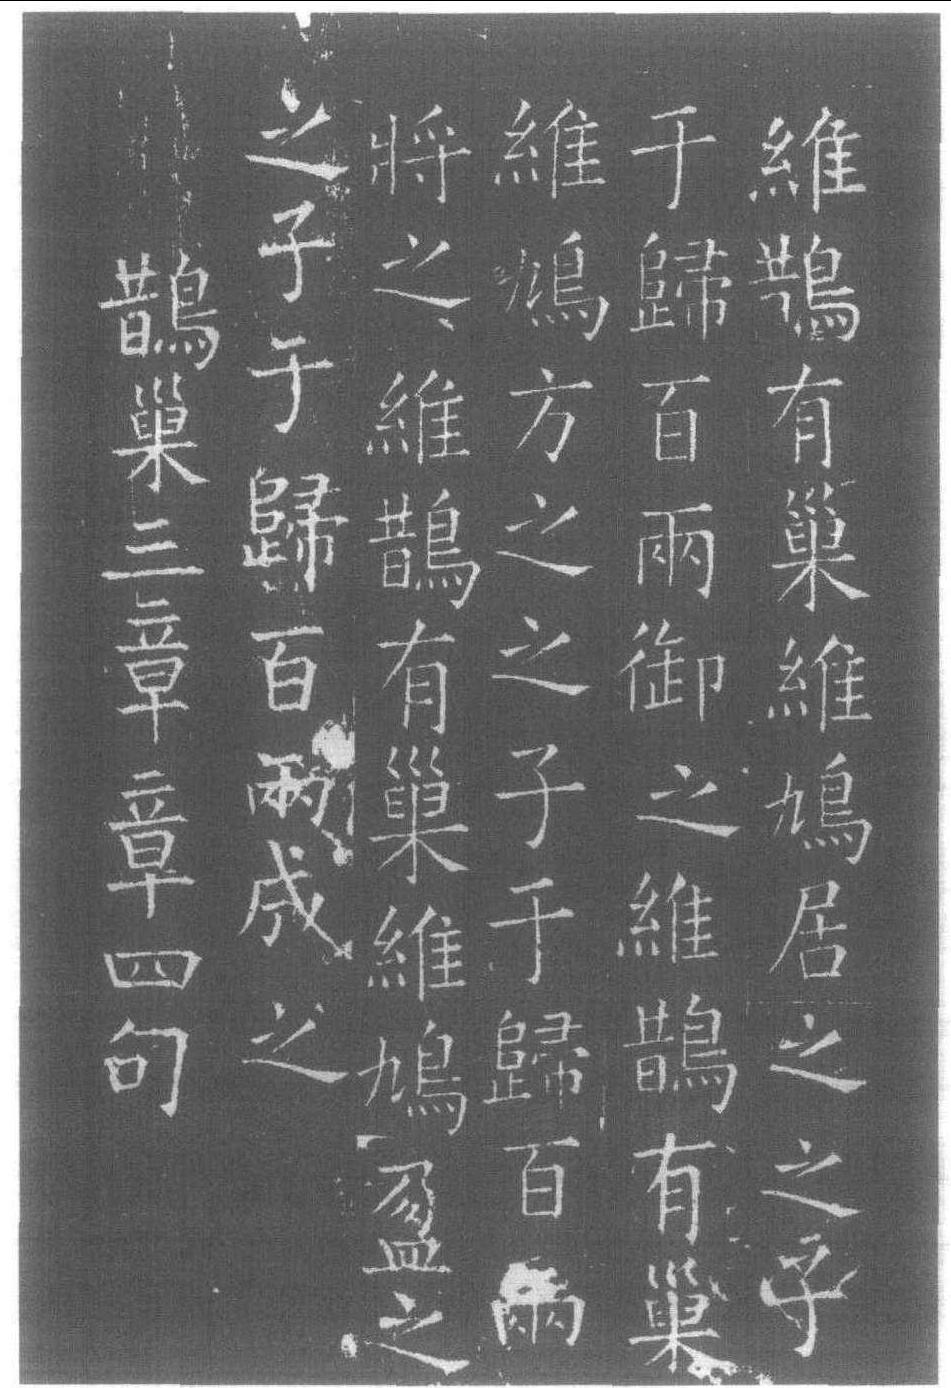 維鵲有巢維鳩居之之子
于歸百兩御之維鵲有巢
維鳩方之之子于歸百兩
將之維鵲有巢維鳩盈之
之子于歸百兩成之
鵲巢三章章四句